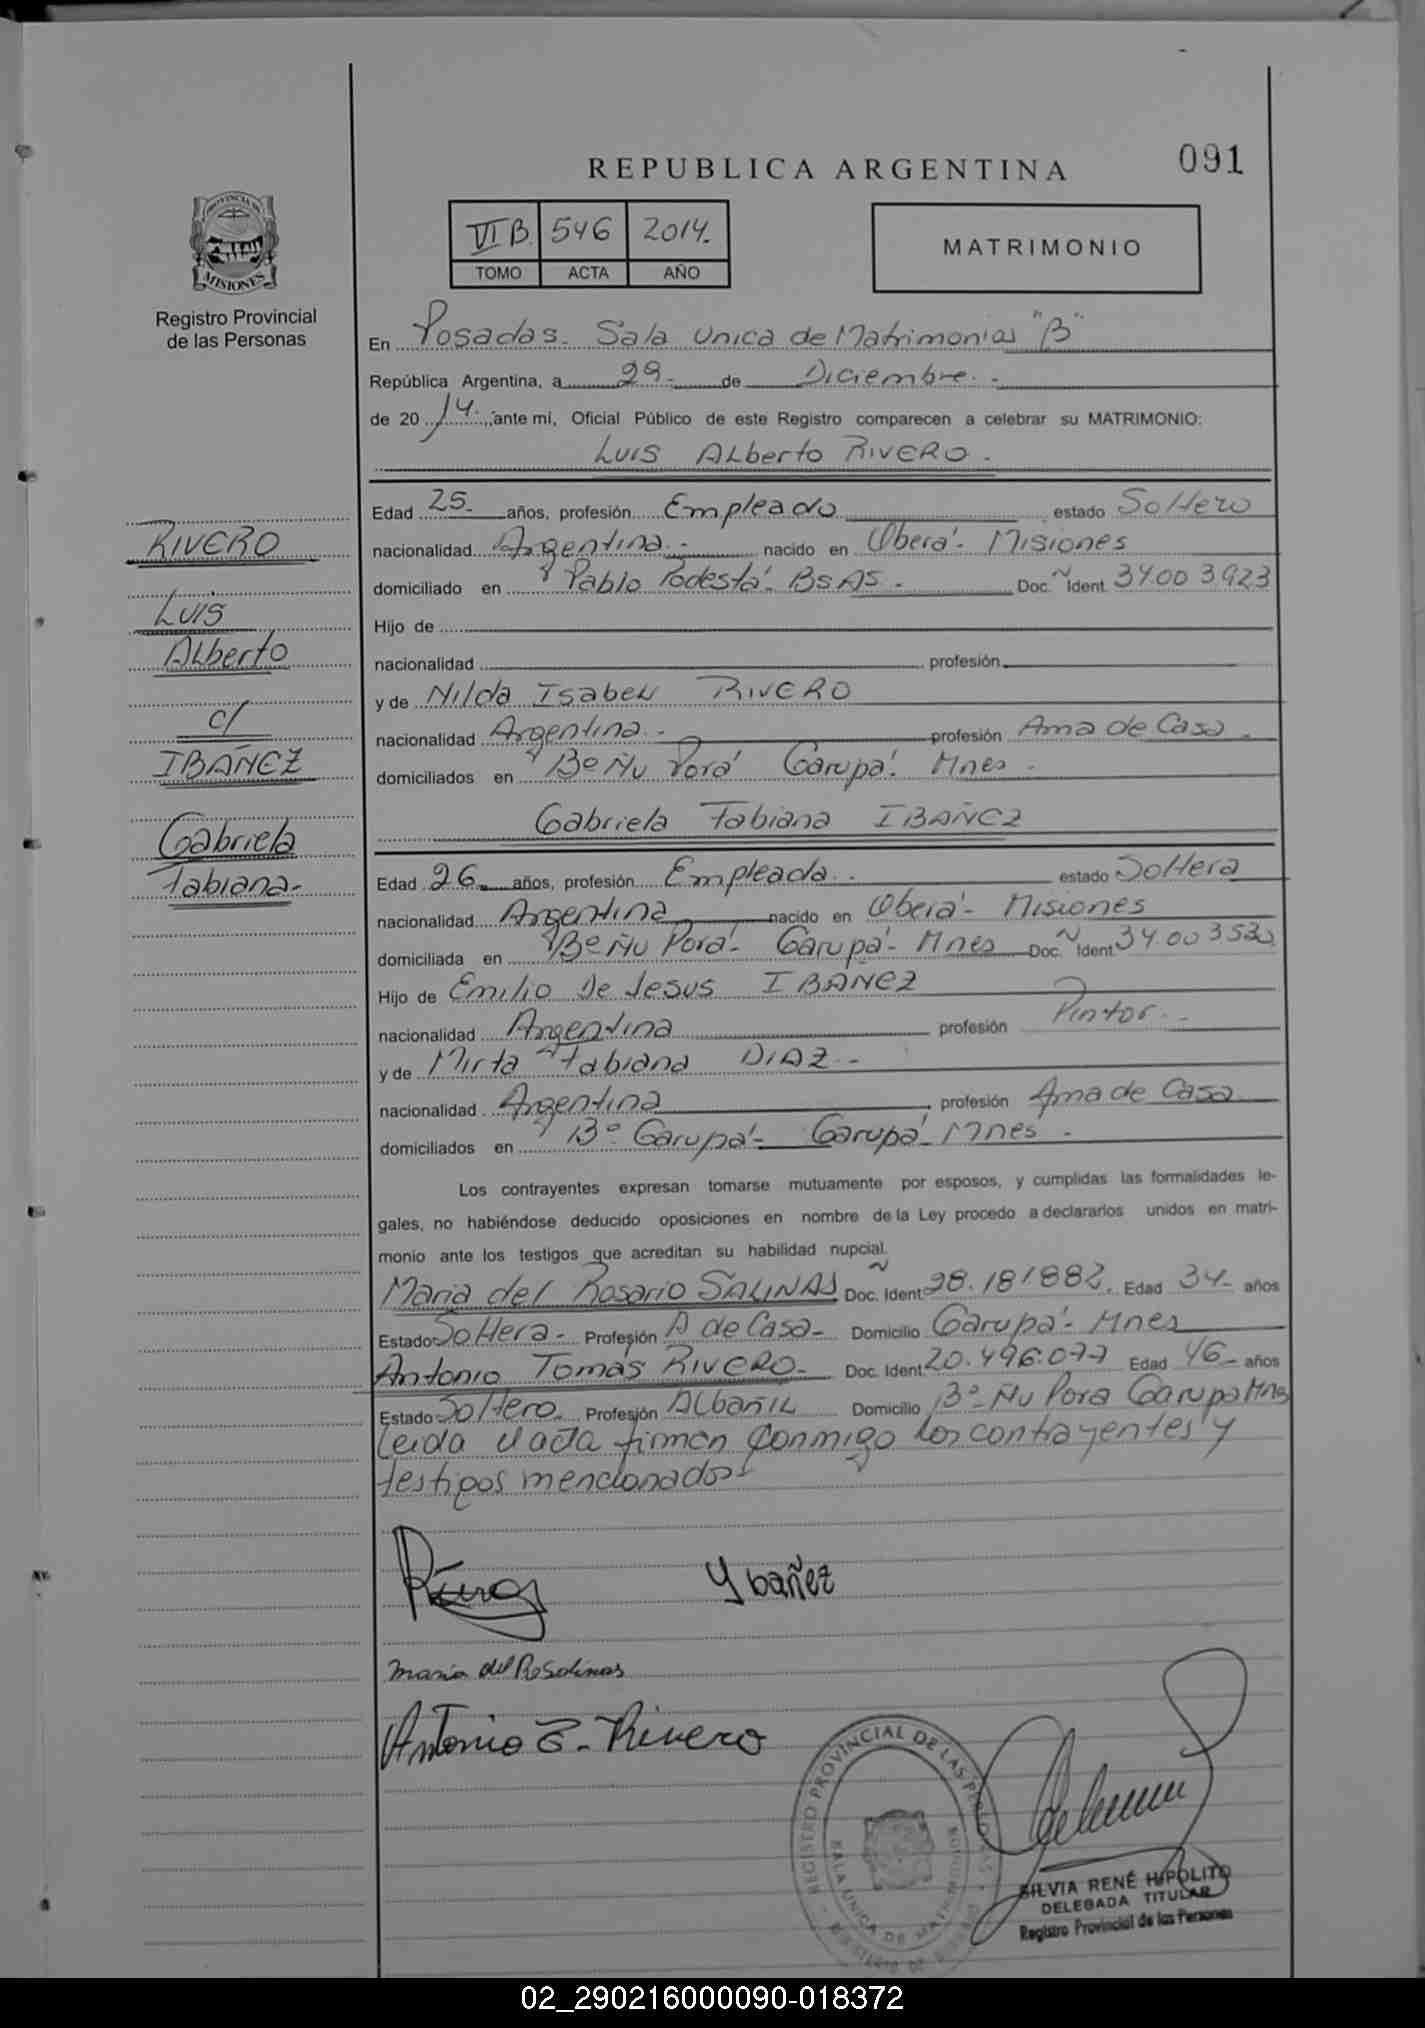 REPUBLICA ARGENTINA
091
VI B. 546 2014.
TOMO ACTA AÑO
MATRIMONIO
PROVINCIA DE
MISIONES
Registro Provincial
de las Personas
RIVERO
Luis
Alberto
c/
IBAÑEZ
Gabriela
Fabiana-
En Posadas- Sala Unica de Matrimonios "B"
República Argentina, a 29- de Diciembre.-
de 2014., ante mi, Oficial Público de este Registro comparecen a celebrar su MATRIMONIO:
Luis Alberto RIVERO-
Edad 25- años, profesión Empleado estado Soltero
nacionalidad Argentina- nacido en Oberá- Misiones
domiciliado en Pablo Podestá- BsAs- Doc. Ident. 34.003923
Hijo de
nacionalidad profesión
y de Nilda Isabel RIVERO
nacionalidad Argentina- profesión Ama de Casa-
domiciliados en Bº Ñu Porá Garupá- Mnes-
Gabriela Fabiana IBAÑEZ
Edad 26- años, profesión Empleada- estado Soltera
nacionalidad Argentina nacido en Oberá- Misiones
domiciliada en Bº Ñu Porá- Garupá- Mnes Doc. Ident. 34.003530
Hijo de Emilio de Jesus IBAÑEZ
nacionalidad Argentina profesión Pintor-
y de Mirta Fabiana DIAZ-
nacionalidad Argentina profesión Ama de Casa
domiciliados en Bº Garupá- Garupá- Mnes-
Los contrayentes expresan tomarse mutuamente por esposos, y cumplidas las formalidades le-
gales, no habiéndose deducido oposiciones en nombre de la Ley procedo a declararlos unidos en matri-
monio ante los testigos que acreditan su habilidad nupcial.
Maria del Rosario SALINAS Doc. Ident. 28.181882. Edad 34- años
Estado Soltera- Profesión A de Casa- Domicilio Garupá- Mnes
Antonio Tomás RIVERO- Doc. Ident. 20.496.077 Edad 46- años
Estado Soltero- Profesión Albañil Domicilio Bº Ñu Pora Garupa Mnes
Leida el acta firman conmigo los contrayentes y
testigos mencionados
Ybañez
Maria del R Salinas
Antonio T. Rivero
REGISTRO PROVINCIAL DE LAS PERSONAS
SALA UNICA DE MATRIMONIOS
SILVIA RENÉ HIPOLITO
DELEGADA TITULAR
Registro Provincial de las Personas
02_290216000090-018372